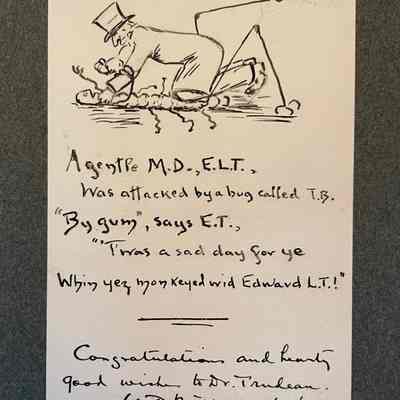 A gentle M.D., E.L.T.,
Was attacked by a bug called T.B.
"By gum", says E.T.,
"'Twas a sad day for ye
Whin yez monkeyed wid Edward L.T.!"
Congratulations and hearty
good wishes to Dr. Trudeau.